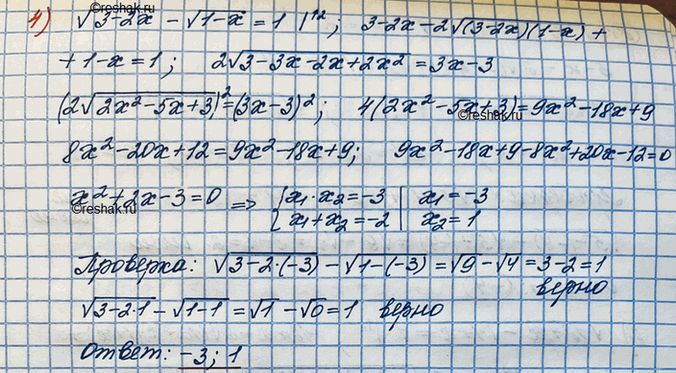 ©reshak.ru
4) √3-2x - √1-x = 1 |↑2 ; 3-2x-2√(3-2x)(1-x) +
+ 1-x = 1 ; 2√3-3x-2x+2x² = 3x-3
(2√2x²-5x+3)² = (3x-3)² ; 4(2x²-5x+3) = 9x²-18x+9
©reshak.ru
8x²-20x+12 = 9x²-18x+9 ; 9x²-18x+9-8x²+20x-12=0
x²+2x-3=0 => { x₁·x₂=-3 | x₁=-3
©reshak.ru { x₁+x₂=-2 | x₂=1
Проверка: √3-2·(-3) - √1-(-3) = √9 - √4 = 3-2=1
верно
√3-2·1 - √1-1 = √1 - √0 = 1 верно
Ответ: -3; 1